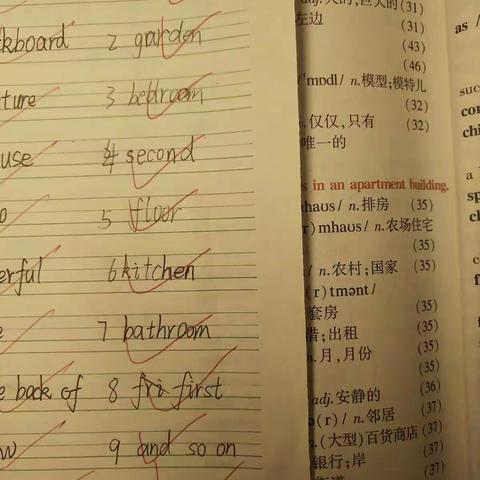 ckboard 2 garden
ture 3 bedroom
use 4 second
o 5 floor
erful 6 kitchen
e 7 bathroom
e back of 8 fri first
w 9 and so on
adj. 大的;巨大的 (31)
左边 (31)
(43)
(46)
/ˈmɒdl/ n.模型;模特儿
(32)
.仅仅,只有 (32)
唯一的
s in an apartment building.
mhaʊs/ n.排房 (35)
r)mhaʊs/ n.农场住宅
(35)
/ n.农村;国家 (35)
(r)tmənt/
套房 (35)
借;出租 (35)
n.月,月份 (35)
(35)
adj.安静的 (36)
ə(r)/ n.邻居 (37)
n.(大型)百货商店 (37)
银行;岸 (37)
(37)
as /
suc
con
chi
a
sp
cl
c
f